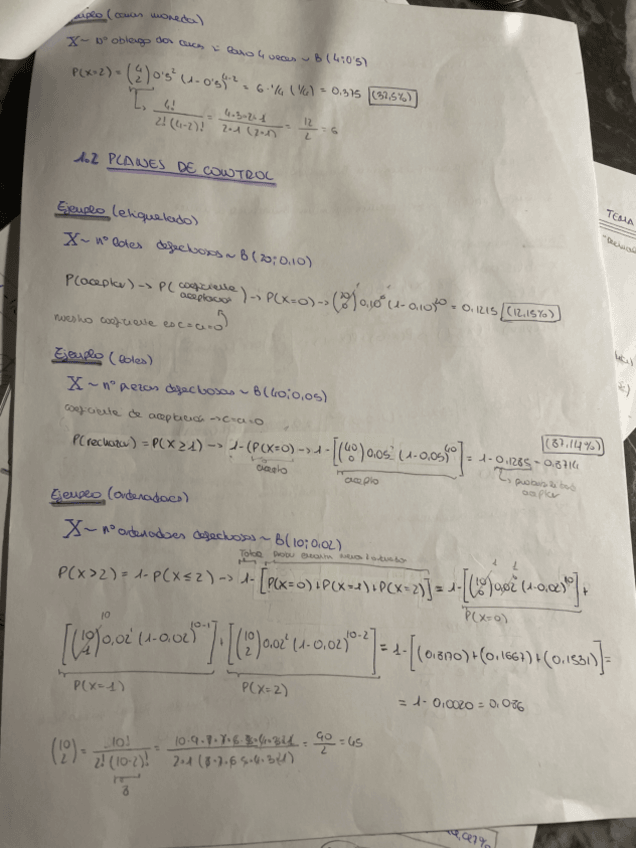 Ejemplo (caras moneda)
X ~ nº obtengo dos caras si lanzo 4 veces ~ B(4; 0'5)
P(X=2) = (4 2) 0'5² (1-0'5)⁴⁻² = 6 · 1/4 (1/4) = 0,375 (37,5%)
4! / 2!(4-2)! = 4·3·2·1 / 2·1 (2·1) = 12/2 = 6
1.2 PLANES DE CONTROL
Ejemplo (etiquetado)
X ~ nº lotes defectuosos ~ B(20; 0,10)
P(aceptar) → P(coeficiente aceptación) → P(X=0) → (20 0) 0,10⁰ (1-0,10)²⁰ = 0,1215 (12,15%)
nuestro coeficiente es c=a=0
Ejemplo (lotes)
X ~ nº piezas defectuosas ~ B(40; 0,05)
coeficiente de aceptación → c=a=0
(87,14%)
P(rechazar) = P(X≥1) → 1-(P(X=0) → 1-[(40 0) 0,05⁰ (1-0,05)⁴⁰] = 1-0,1285 = 0,8714
acepto
acepto
probabilidad aceptar
Ejemplo (ordenadores)
X ~ nº ordenadores defectuosos ~ B(10; 0,02)
P(X>2) = 1-P(X≤2) → 1-[P(X=0)+P(X=1)+P(X=2)] = 1-[(10 0) 0,02⁰ (1-0,02)¹⁰] +
P(X=0)
[(10 1) 0,02¹ (1-0,02)¹⁰⁻¹] + [(10 2) 0,02² (1-0,02)¹⁰⁻²] = 1-[(0,8170)+(0,1667)+(0,1531)] =
P(X=1) P(X=2)
= 1-0,0020 = 0,086
(10 2) = 10! / 2!(10-2)! = 10·9·8·7·6·5·4·3·2·1 / 2·1 (8·7·6·5·4·3·2·1) = 90/2 = 45
8
TEMA